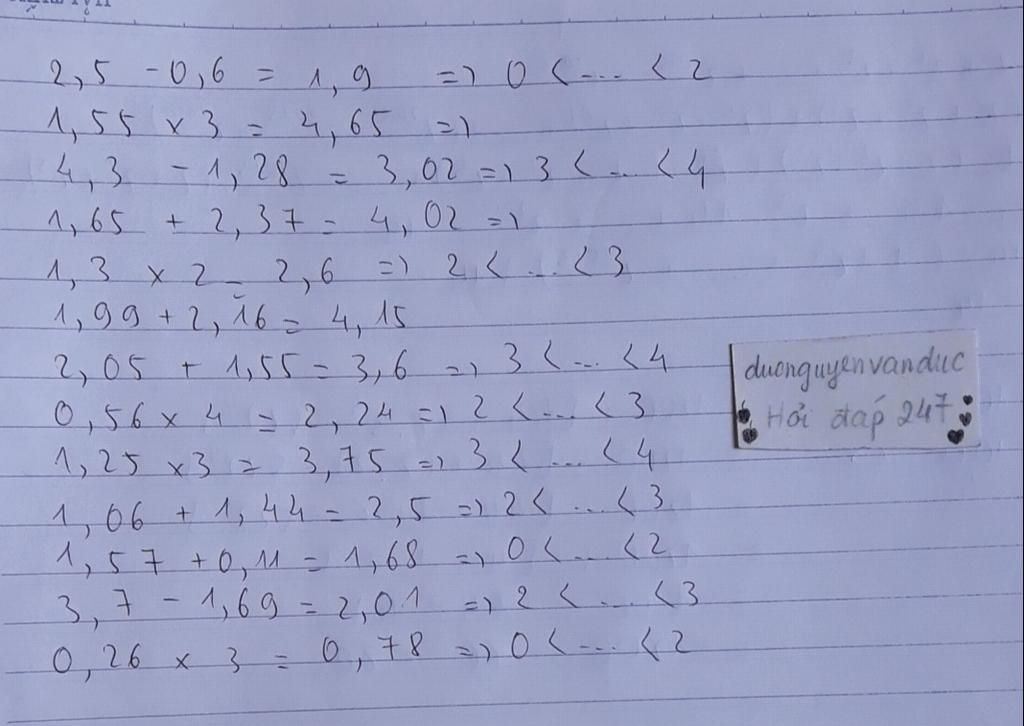 2,5 - 0,6 = 1,9 => 0 < ... < 2
1,55 x 3 = 4,65 =>
4,3 - 1,28 = 3,02 => 3 < ... < 4
1,65 + 2,37 = 4,02 =>
1,3 x 2 = 2,6 => 2 < ... < 3
1,99 + 2,16 = 4,15
2,05 + 1,55 = 3,6 => 3 < ... < 4
0,56 x 4 = 2,24 => 2 < ... < 3
1,25 x 3 = 3,75 => 3 < ... < 4
1,06 + 1,44 = 2,5 => 2 < ... < 3
1,57 + 0,11 = 1,68 => 0 < ... < 2
3,7 - 1,69 = 2,01 => 2 < ... < 3
0,26 x 3 = 0,78 => 0 < ... < 2
duonguyenvanduc
Hỏi đáp 247